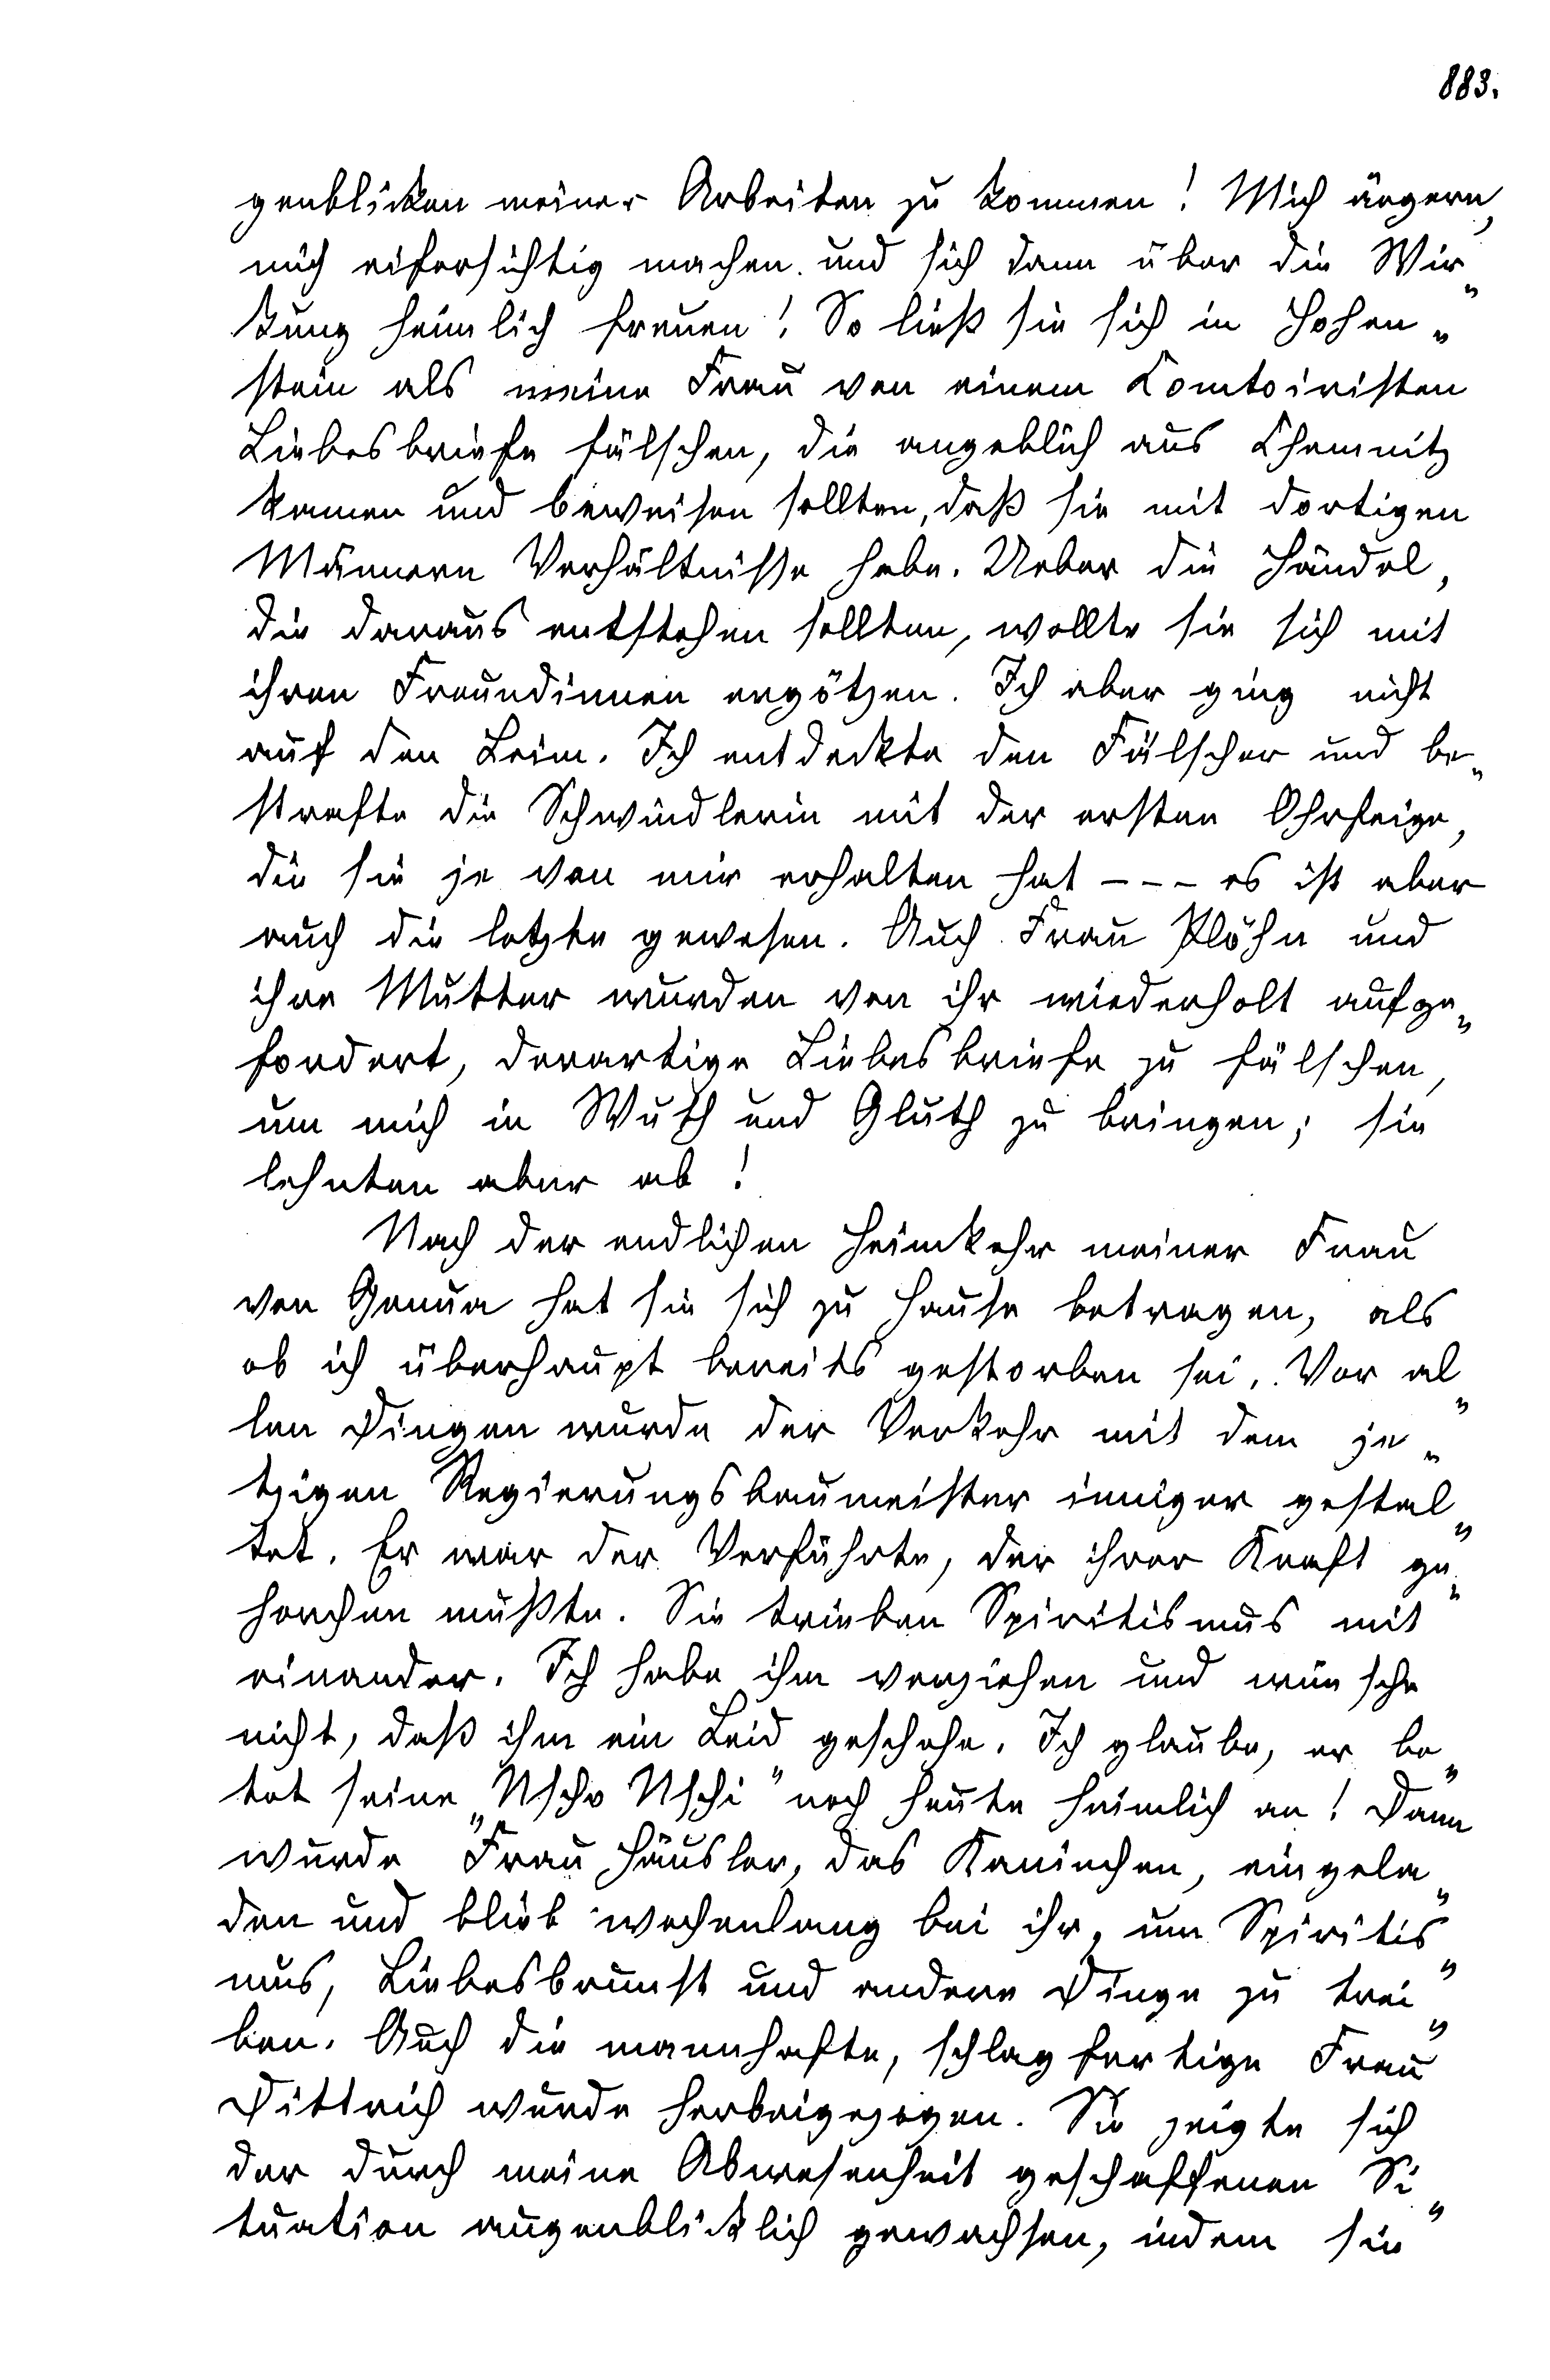 883.
genblicken meiner Arbeiten zu kommen! Mich ärgern,
mich eifersichtig machen und sich dann über die Wir„
kung heimlich freuen! So ließ sie sich in Hohen„
stein als meine Frau von einem Comtoiristen
Liebesbriefe fälschen, die angeblich aus Chemnitz
kamen und beweisen sollten, daß sie mit dortigen
Männern Verhältnisse habe. Ueber die Händel,
die daraus entstehen sollten, wollte sie sich mit
ihren Freundinnen ergötzen. Ich aber ging nicht
auf den Leim. Ich entdeckte den Fälscher und be„
strafte die Schwindlerin mit der ersten Ohrfeige,
die sie je von mir erhalten hat - - - es ist aber
auch die letzte gewesen. Auch Frau Plöhn und
ihre Mutter wurden von ihr wiederholt aufge„
fordert, derartige Liebesbriefe zu fälschen,
um mich in Wuth und Gluth zu bringen; sie
lehnten aber ab!
Nach der endlichen Heimkehr meiner Frau
von Genua hat sie sich zu Hause betragen, als
ob ich überhaupt bereits gestorben sei. Vor al„
len Dingen wurde der Verkehr mit dem je„
tzigen Regierungsbaumeister inniger gestal„
tet. Er war der Verführte, der ihrer Kraft ge„
horchen mußte. Sie trieben Spiritismus mit
einander. Ich habe ihm verziehen und wünsche
nicht, daß ihm ein Leid geschehe. Ich glaube, er be„
tet seine „Nscho Nschi" noch heute heimlich an! Dann
wurde Frau Häusler, das Kaninchen, eingela„
den und blieb wochenlang bei ihr, um Spiritis„
mus, Liebesbrunst und andere Dinge zu trei„
ben. Auch die mannhafte, schlagfertige Frau
Dittrich wurde herbeigezogen. Sie zeigte sich
der durch meine Abwesenheit geschaffenen Si„
tuation augenblicklich gewachsen, indem sie